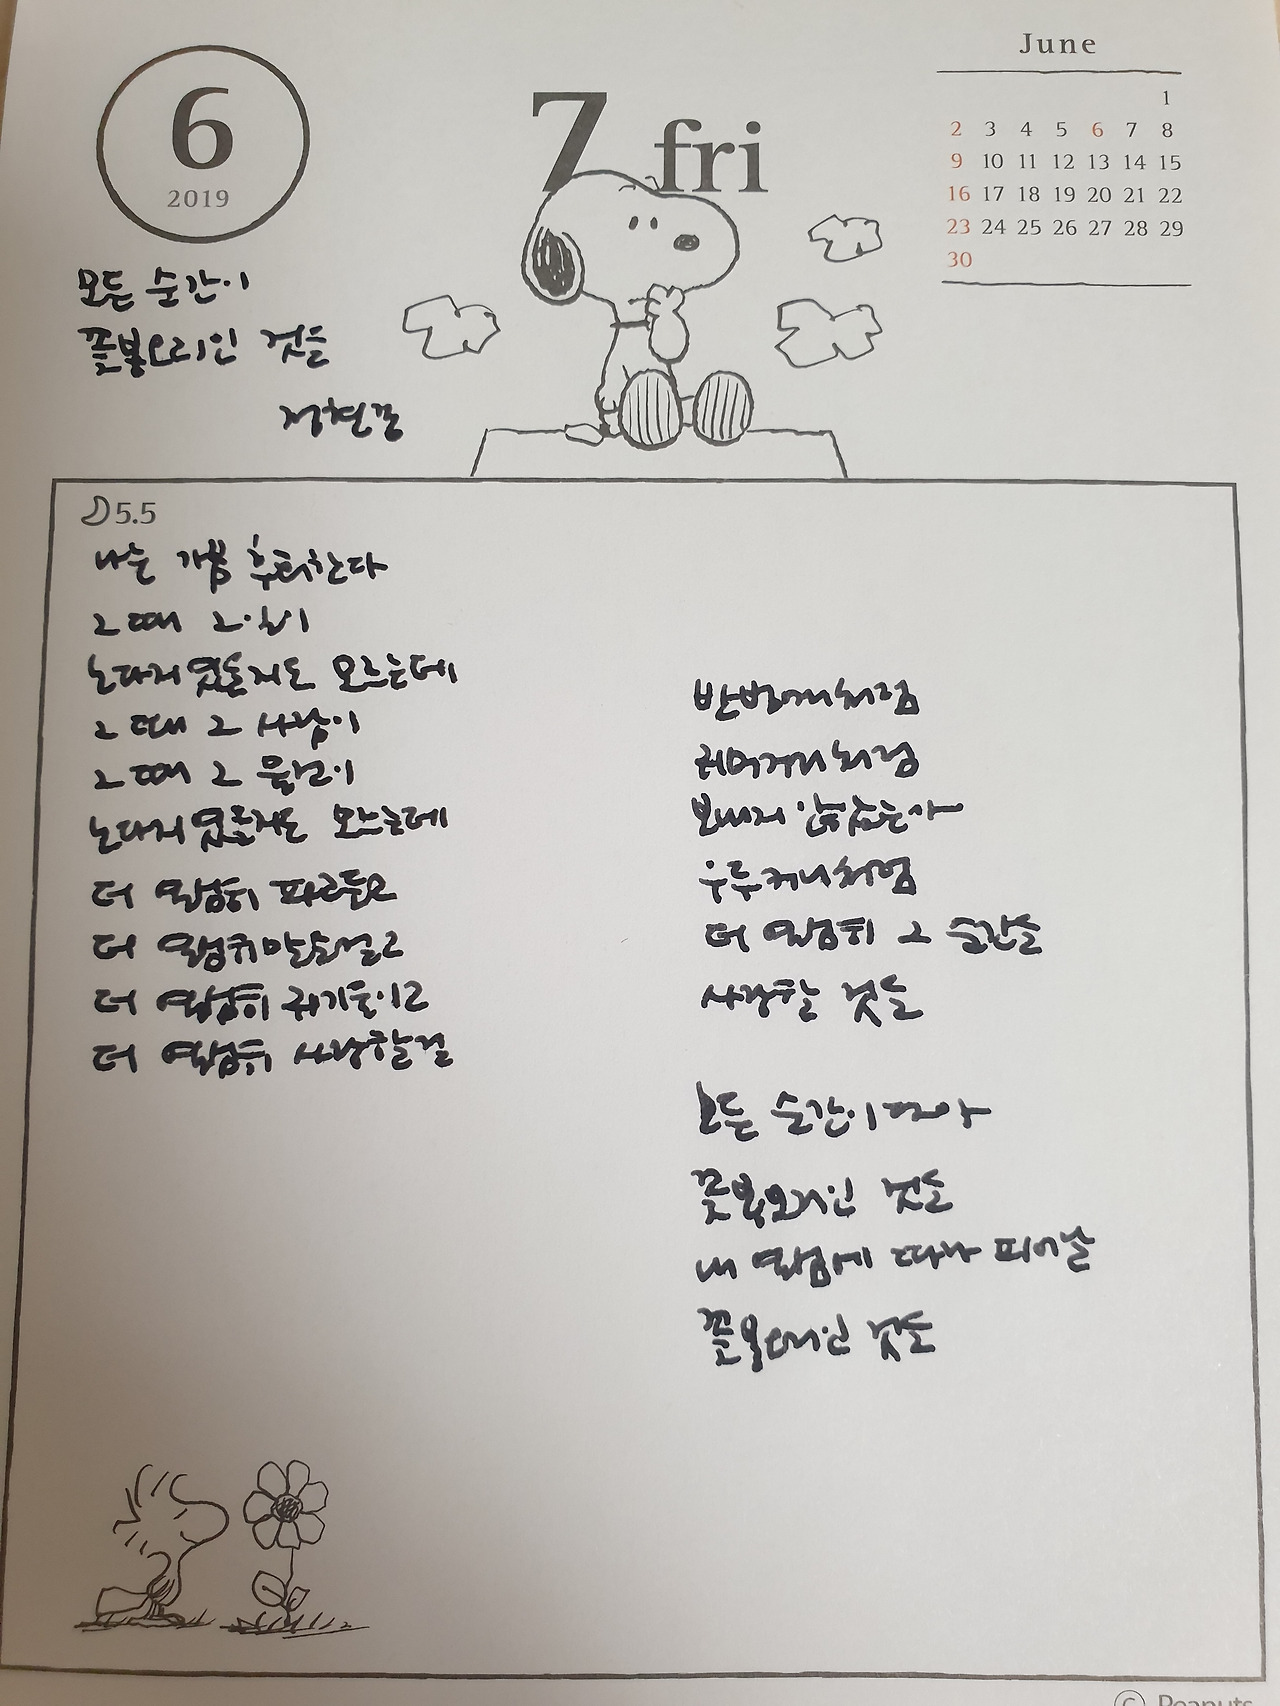 6
2019
7 fri
June
1
2 3 4 5 6 7 8
9 10 11 12 13 14 15
16 17 18 19 20 21 22
23 24 25 26 27 28 29
30
모든 순간이
꽃봉오리인 것을
정현종
5.5
나는 가끔 후회한다
그 때 그 일이
노다지였을지도 모르는데
그 때 그 사람이
그 때 그 물건이
노다지였을지도 모르는데
더 열심히 파고들고
더 열심히 말을 걸고
더 열심히 귀기울이고
더 열심히 사랑할걸
반벙어리처럼
귀머거리처럼
보내지 않았는가
우두커니처럼
더 열심히 그 순간을
사랑할 것을
모든 순간이 다아
꽃봉오리인 것을
내 열심에 따라 피어날
꽃봉오리인 것을
© Peanuts